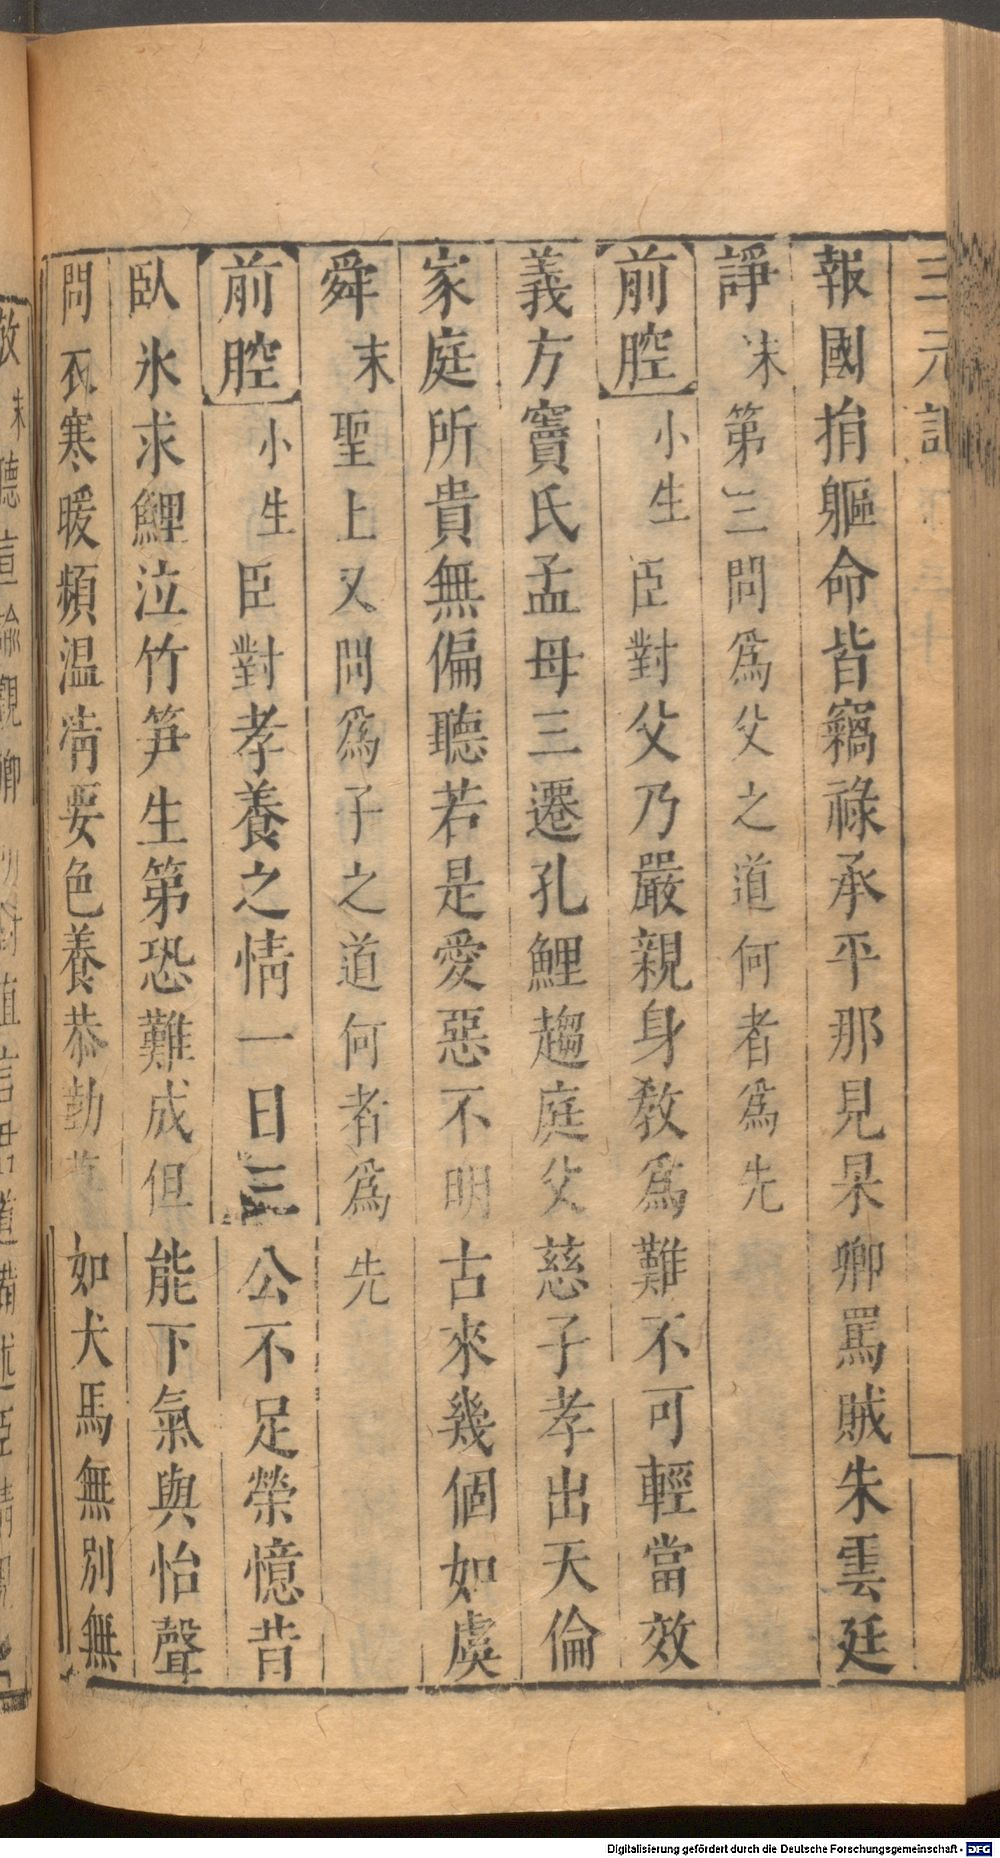 三元記
報國捐軀命皆竊祿承平那見杲卿罵賊朱雲廷
諍末第三問爲父之道何者爲先
前腔小生臣對父乃嚴親身教爲難不可輕當效
義方竇氏孟母三遷孔鯉趨庭父慈子孝出天倫
家庭所貴無偏聽若是愛惡不明古來幾個如虞
舜末聖上又問爲子之道何者爲先
前腔小生臣對孝養之情一日三公不足榮憶昔
臥氷求鯉泣竹笋生第恐難成但能下氣與怡聲
問衣寒暖頻温凊要色養恭勤如犬馬無別無
敬末聽宣諭覩卿對道
Digitalisierung gefördert durch die Deutsche Forschungsgemeinschaft - DFG